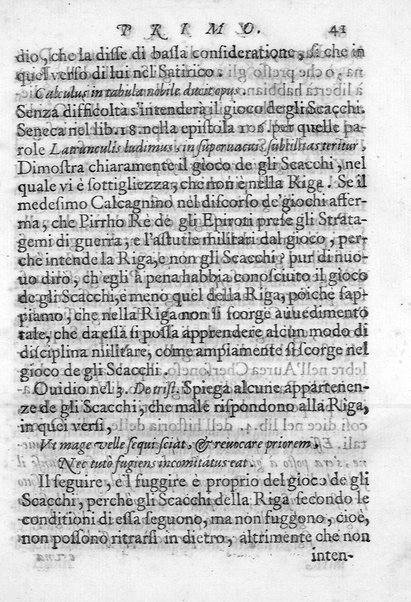 PRIMO. 41
dio, che la disse di bassa consideratione, si che in
quel verso di lui nel Satirico.
Calculus in tabula nobile ducit opus.
Senza difficoltà s'intenderà il gioco de gli Scacchi.
Seneca nel lib. 18. nella epistola 106. per quelle pa-
role Latrunculis ludimus, in superuacuis subtilitas teritur,
Dimostra chiaramente il gioco de gli Scacchi, nel
quale vi è sottigliezza, che non è nella Riga. Se il
medesimo Calcagnino nel discorso de' giochi affer-
ma, che Pirrho Rè de gli Epiroti prese gli Strata-
gemi di guerra, e l'astutie militari dal gioco, per-
chè intende la Riga, e non gli Scacchi? pur di nuo-
uo dirò, ch'egli à pena habbia conosciuto il gioco
de gli Scacchi, e meno quel della Riga, poiche sap-
piamo, che nella Riga non si scorge auuedimento
tale, che da essa si possa apprendere alcun modo di
disciplina militare, come ampiamente si scorge nel
gioco de gli Scacchi.
Ouidio nel 3. De trist. Spiega alcune appartenen-
ze de gli Scacchi, che male rispondono alla Riga,
in quei versi,
Vt mage velle sequi sciat, & reuocare priorem,
Nec tutò fugiens incomitatus eat.
Il seguire, e l fuggire è proprio del gioco de gli
Scacchi, perchè gli Scacchi della Riga secondo le
conditioni di essa seguono, ma non fuggono, cioè,
non possono ritrarsi in dietro, altrimente che non
inten-